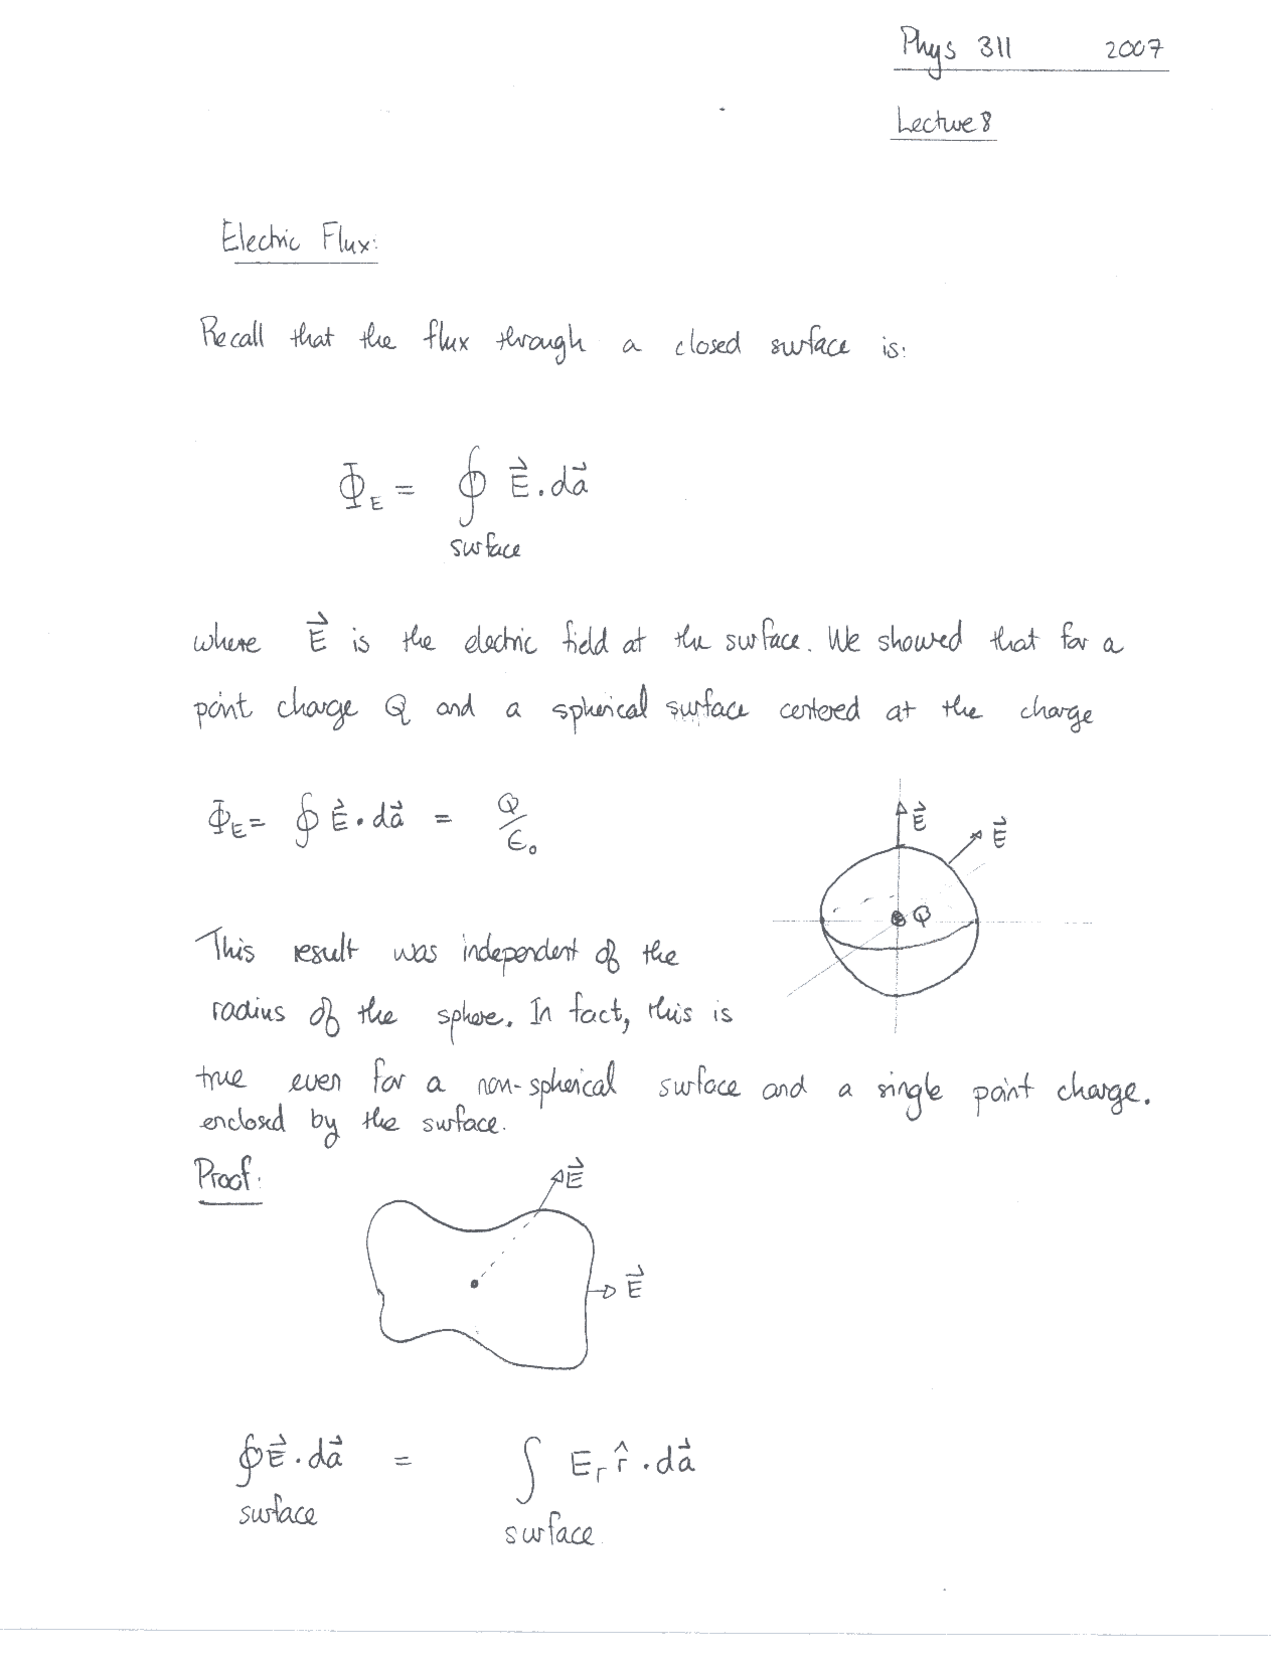 Phys 311 2007
Lecture 8
Electric Flux:
Recall that the flux through a closed surface is:
Φ_E = ∮ E⃗ . da⃗
surface
where E⃗ is the electric field at the surface. We showed that for a
point charge Q and a spherical surface centered at the charge
Φ_E = ∮ E⃗ . da⃗ = Q/ε₀
E⃗
E⃗
Q
This result was independent of the
radius of the sphere. In fact, this is
true even for a non-spherical surface and a single point charge.
enclosed by the surface.
Proof:
E⃗
E⃗
∮ E⃗ . da⃗ = ∫ E_r r̂ . da⃗
surface surface